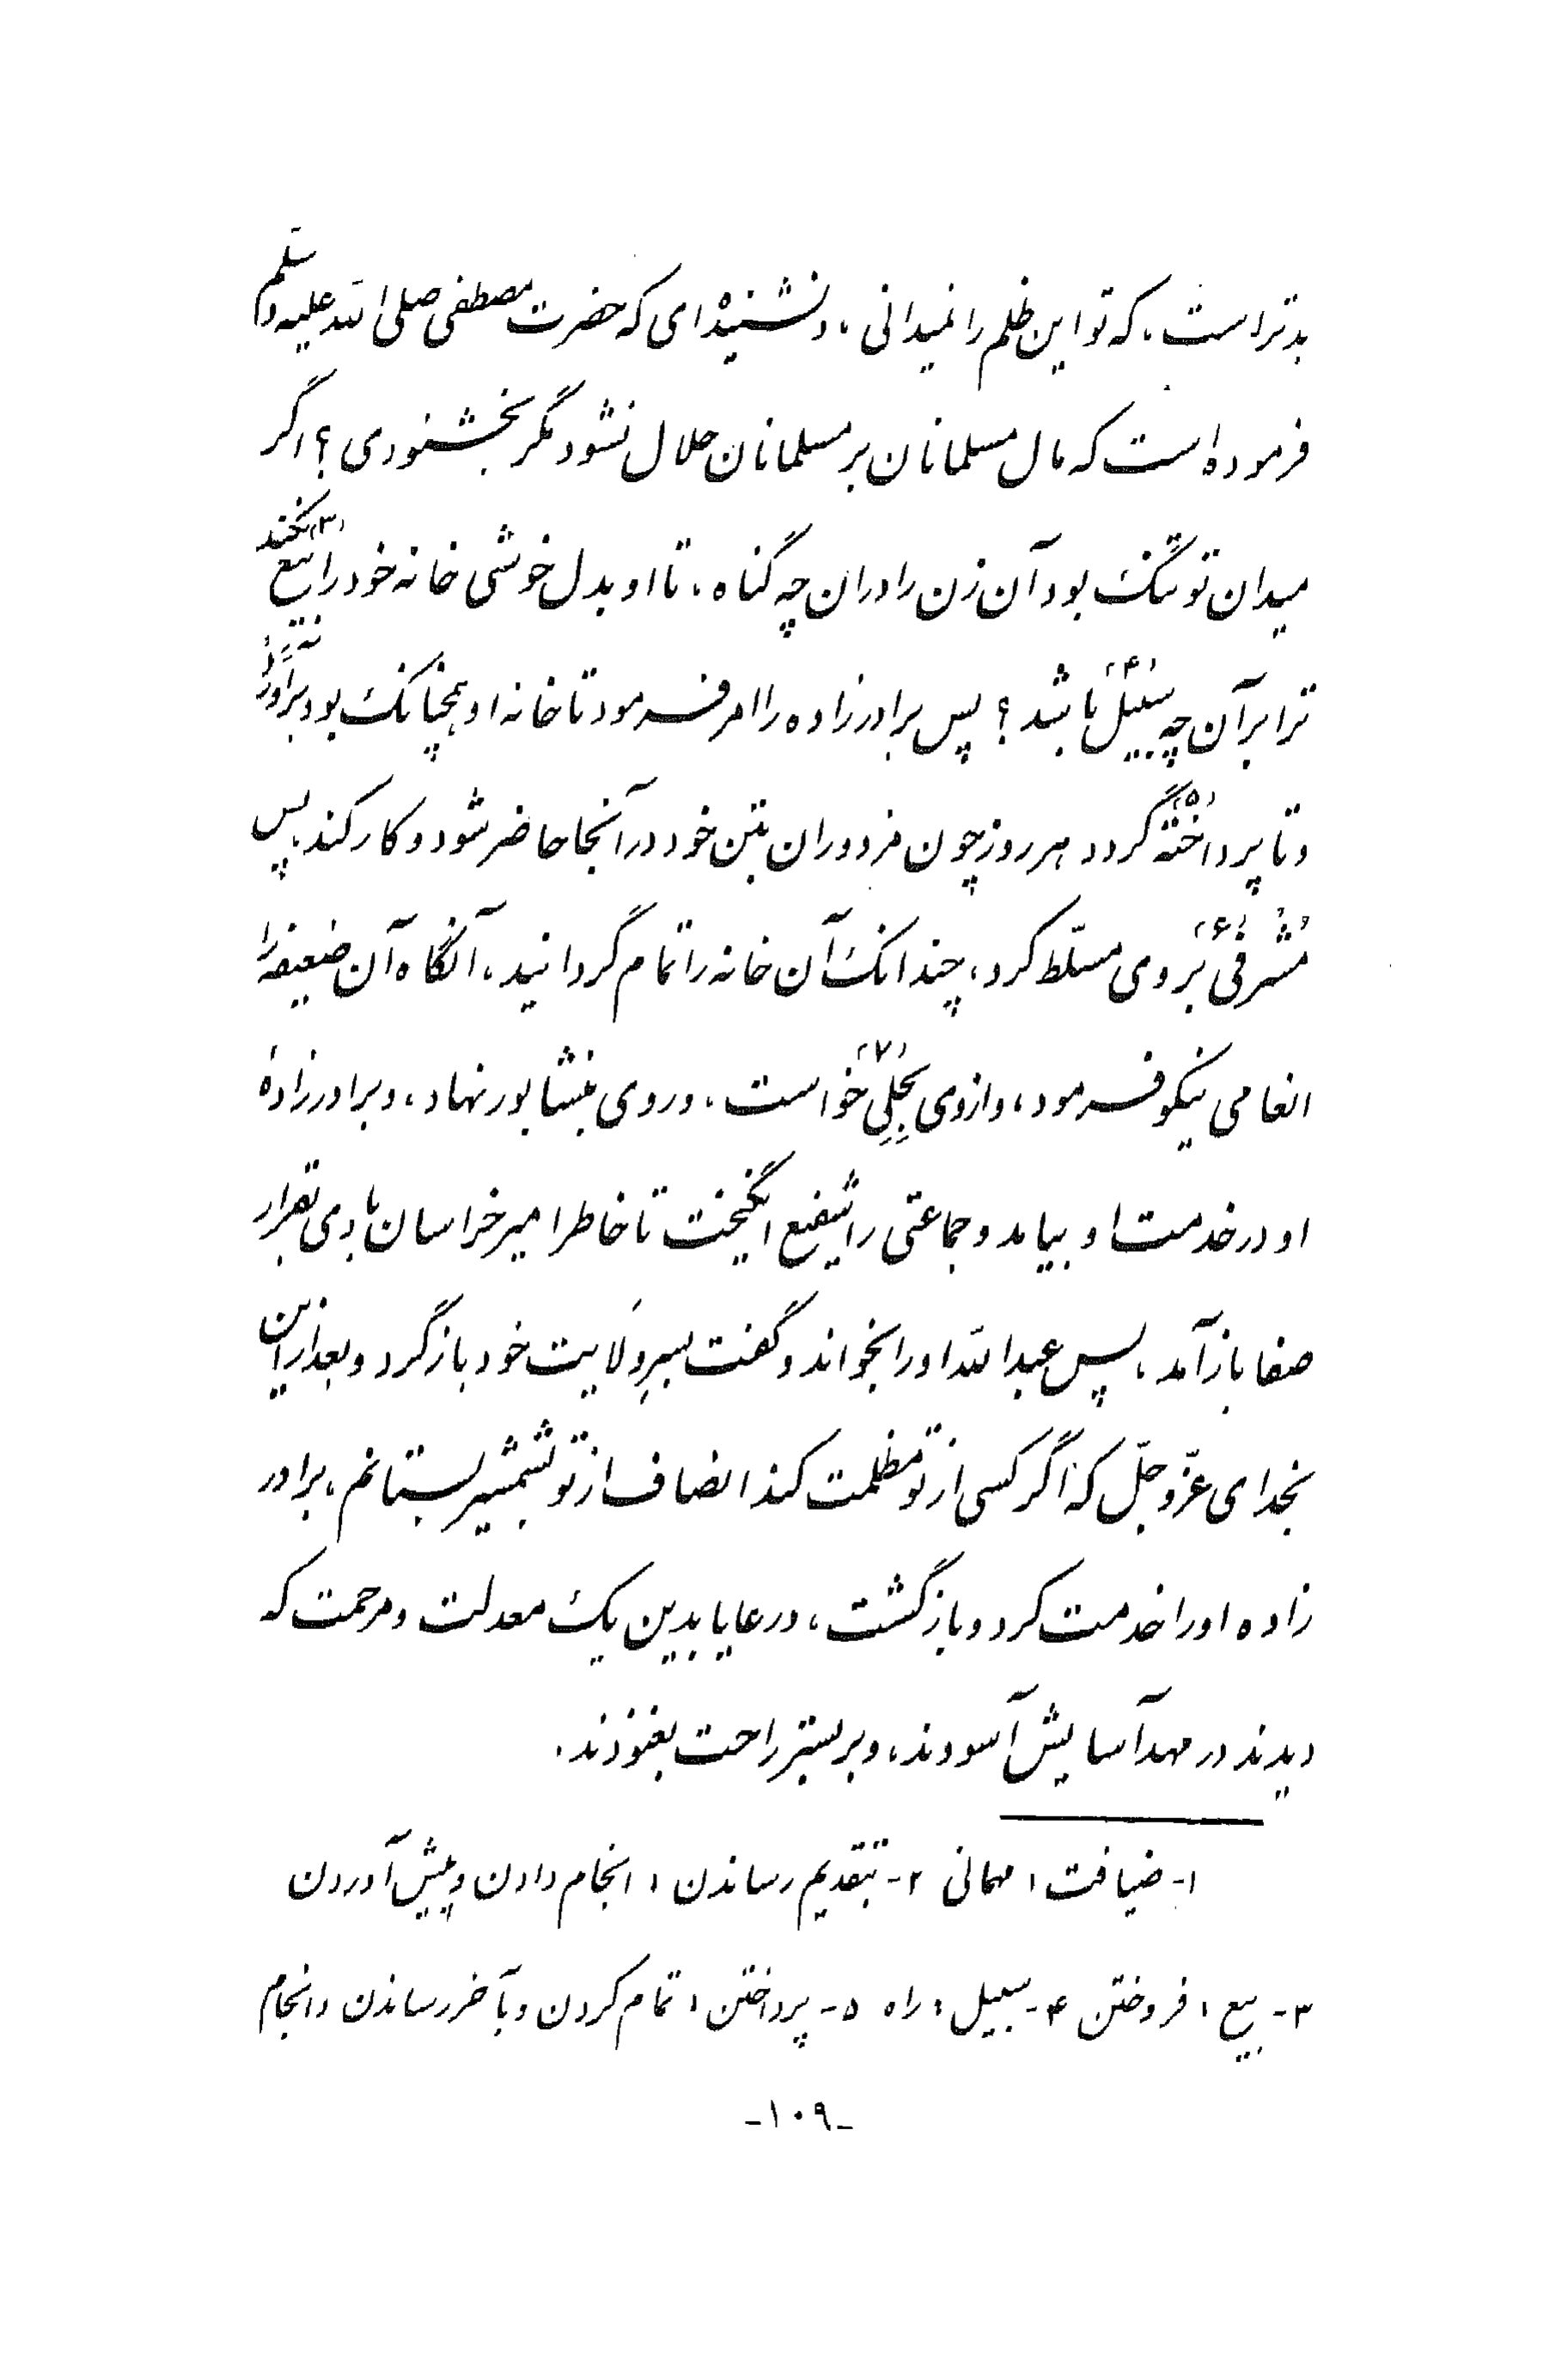 بدتر است، که تو این ظلم را نمیدانی، و نشنیده‌ای که حضرت مصطفی صلی الله علیه و سلم
فرموده است که مال مسلمانان بر مسلمانان حلال نشود مگر بخشنودی؟ اگر
میدان تو تنگ بود آن زن را دران چه گناه، تا او بدل خوشی خانه خود را بیع (۳) نکند
ترا بر آن چه سبیل (۴) باشد؟ پس برادرزاده را امر فرمود تا خانه او همچنانک بود برآورد
و تا پرداخته (۵) گردد هر روز چون مزدوران بتن خود در آنجا حاضر شود و کار کند، پس
مُشرفی (۶) بروی مسلّط کرد، چندانک آن خانه را تمام گردانید، آنگاه آن ضعیفه را
انعامی نیکو فرمود، و ازوی بحلی (۷) خواست، و روی بنیشابور نهاد، و برادرزادهٔ
او در خدمت او بیامد و جماعتی را شفیع انگیخت تا خاطر امیر خراسان با وی بقرار
صفا باز آمد، پس عبدالله او را بخواند و گفت بسر ولایت خود باز گرد و بعد ازین
بخدای عزّ و جلّ که اگر کسی از تو تظلمت کند انصاف از تو بشمشیر بستانم، برادر
زاده او را خدمت کرد و بازگشت، و رعایا بدین یک معدلت و مرحمت که
دیدند در مهد آسایش آسودند، و بر بستر راحت بغنوذند.
۱- ضیافت: مهمانی ۲- بتقدیم رساندن: انجام دادن و پیش آوردن
۳- بیع: فروختن ۴- سبیل: راه ۵- پرداختن: تمام کردن و بآخر رساندن و انجام
-۱۰۹-